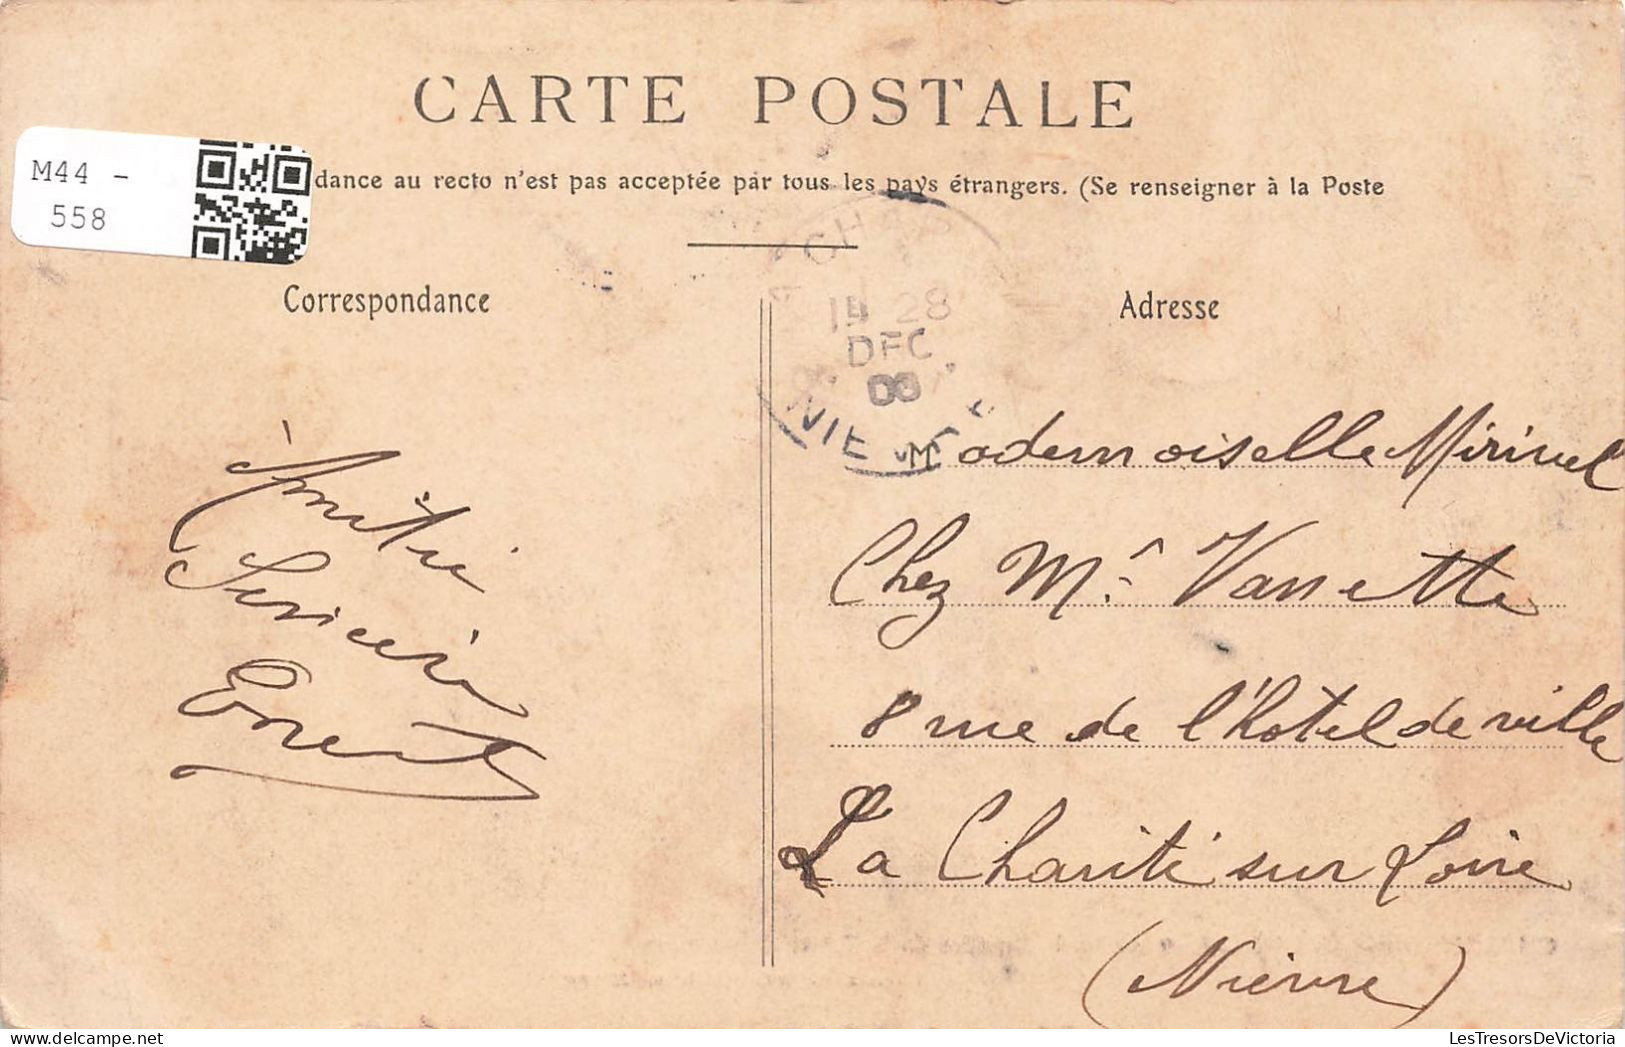 CARTE POSTALE
M44 -
558
dance au recto n'est pas acceptée par tous les pays étrangers. (Se renseigner à la Poste
Correspondance
Adresse
19 28
DEC
08
NIEVRE
Amitié
Sincère
Ernest
Mademoiselle Mirivel
Chez Mr Vannette
8 rue de l'hotel de ville
La Charité sur Loire
(Nièvre)
LesTresorsDeVictoria